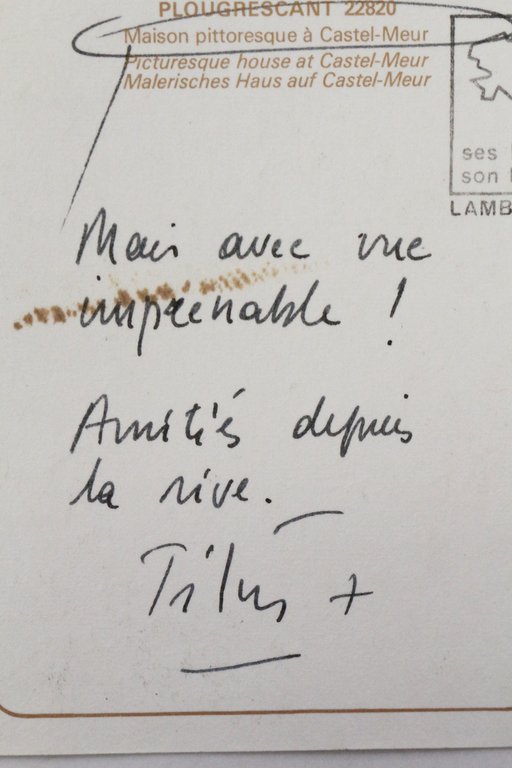 PLOUGRESCANT 22820
Maison pittoresque à Castel-Meur
Picturesque house at Castel-Meur
Malerisches Haus auf Castel-Meur
ses
son
LAMB
Mais avec vue
imprenable !
Amitiés depuis
la rive.